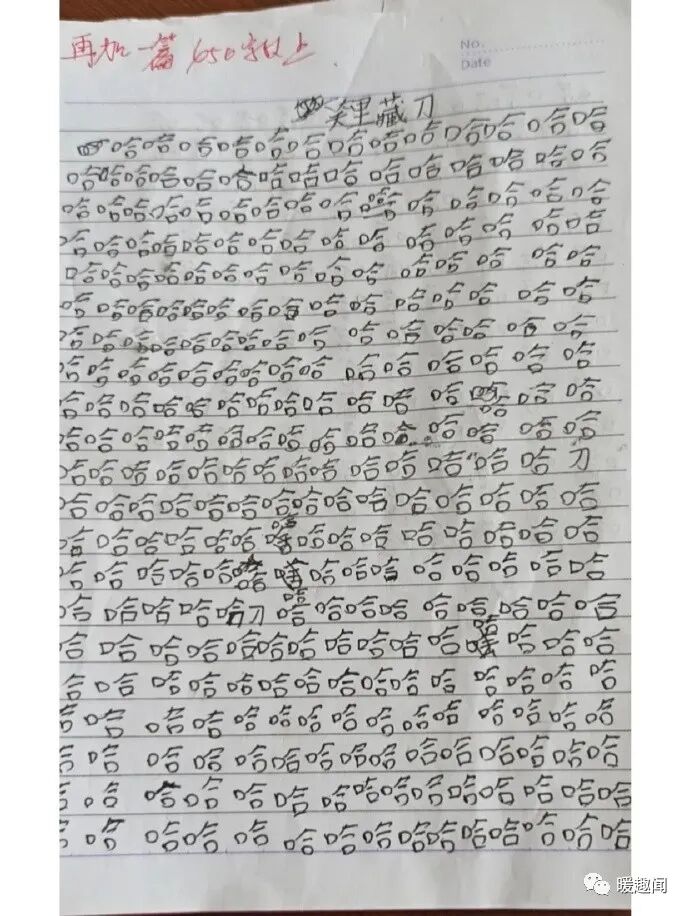 再加一篇650字以上
No.
Date
笑里藏刀
哈哈哈哈哈哈哈哈哈哈哈哈哈
哈哈哈哈哈哈哈哈哈哈哈哈哈哈哈
哈哈哈哈哈哈哈哈哈哈哈哈哈哈哈
哈哈哈哈哈哈哈哈哈哈哈哈哈哈哈
哈哈哈哈哈哈哈哈哈哈哈哈哈哈哈
哈哈哈哈哈哈哈哈哈哈哈哈哈哈哈
哈哈哈哈哈哈哈哈哈哈哈哈哈哈哈
哈哈哈哈哈哈哈哈哈哈哈哈哈哈哈
哈哈哈哈哈哈哈哈哈哈哈哈哈哈哈
哈哈哈哈哈哈哈哈哈哈哈哈哈哈哈
哈哈哈哈哈哈哈哈哈哈哈哈哈哈刀
哈哈哈哈哈哈哈哈哈哈哈哈哈哈哈
哈哈哈哈哈哈哈哈哈哈哈哈哈哈哈
哈哈哈哈哈哈哈哈哈哈哈哈哈哈哈
哈哈哈哈哈刀哈哈哈哈哈哈哈哈哈
哈哈哈哈哈哈哈哈哈哈哈哈哈哈哈
哈哈哈哈哈哈哈哈哈哈哈哈哈哈哈
哈哈哈哈哈哈哈哈哈哈哈哈哈哈哈
哈哈哈哈哈哈哈哈哈哈哈哈哈哈哈
哈哈哈哈哈哈哈哈哈哈哈哈哈哈哈
哈哈哈哈哈哈哈哈哈哈哈哈哈哈哈
暖趣闻